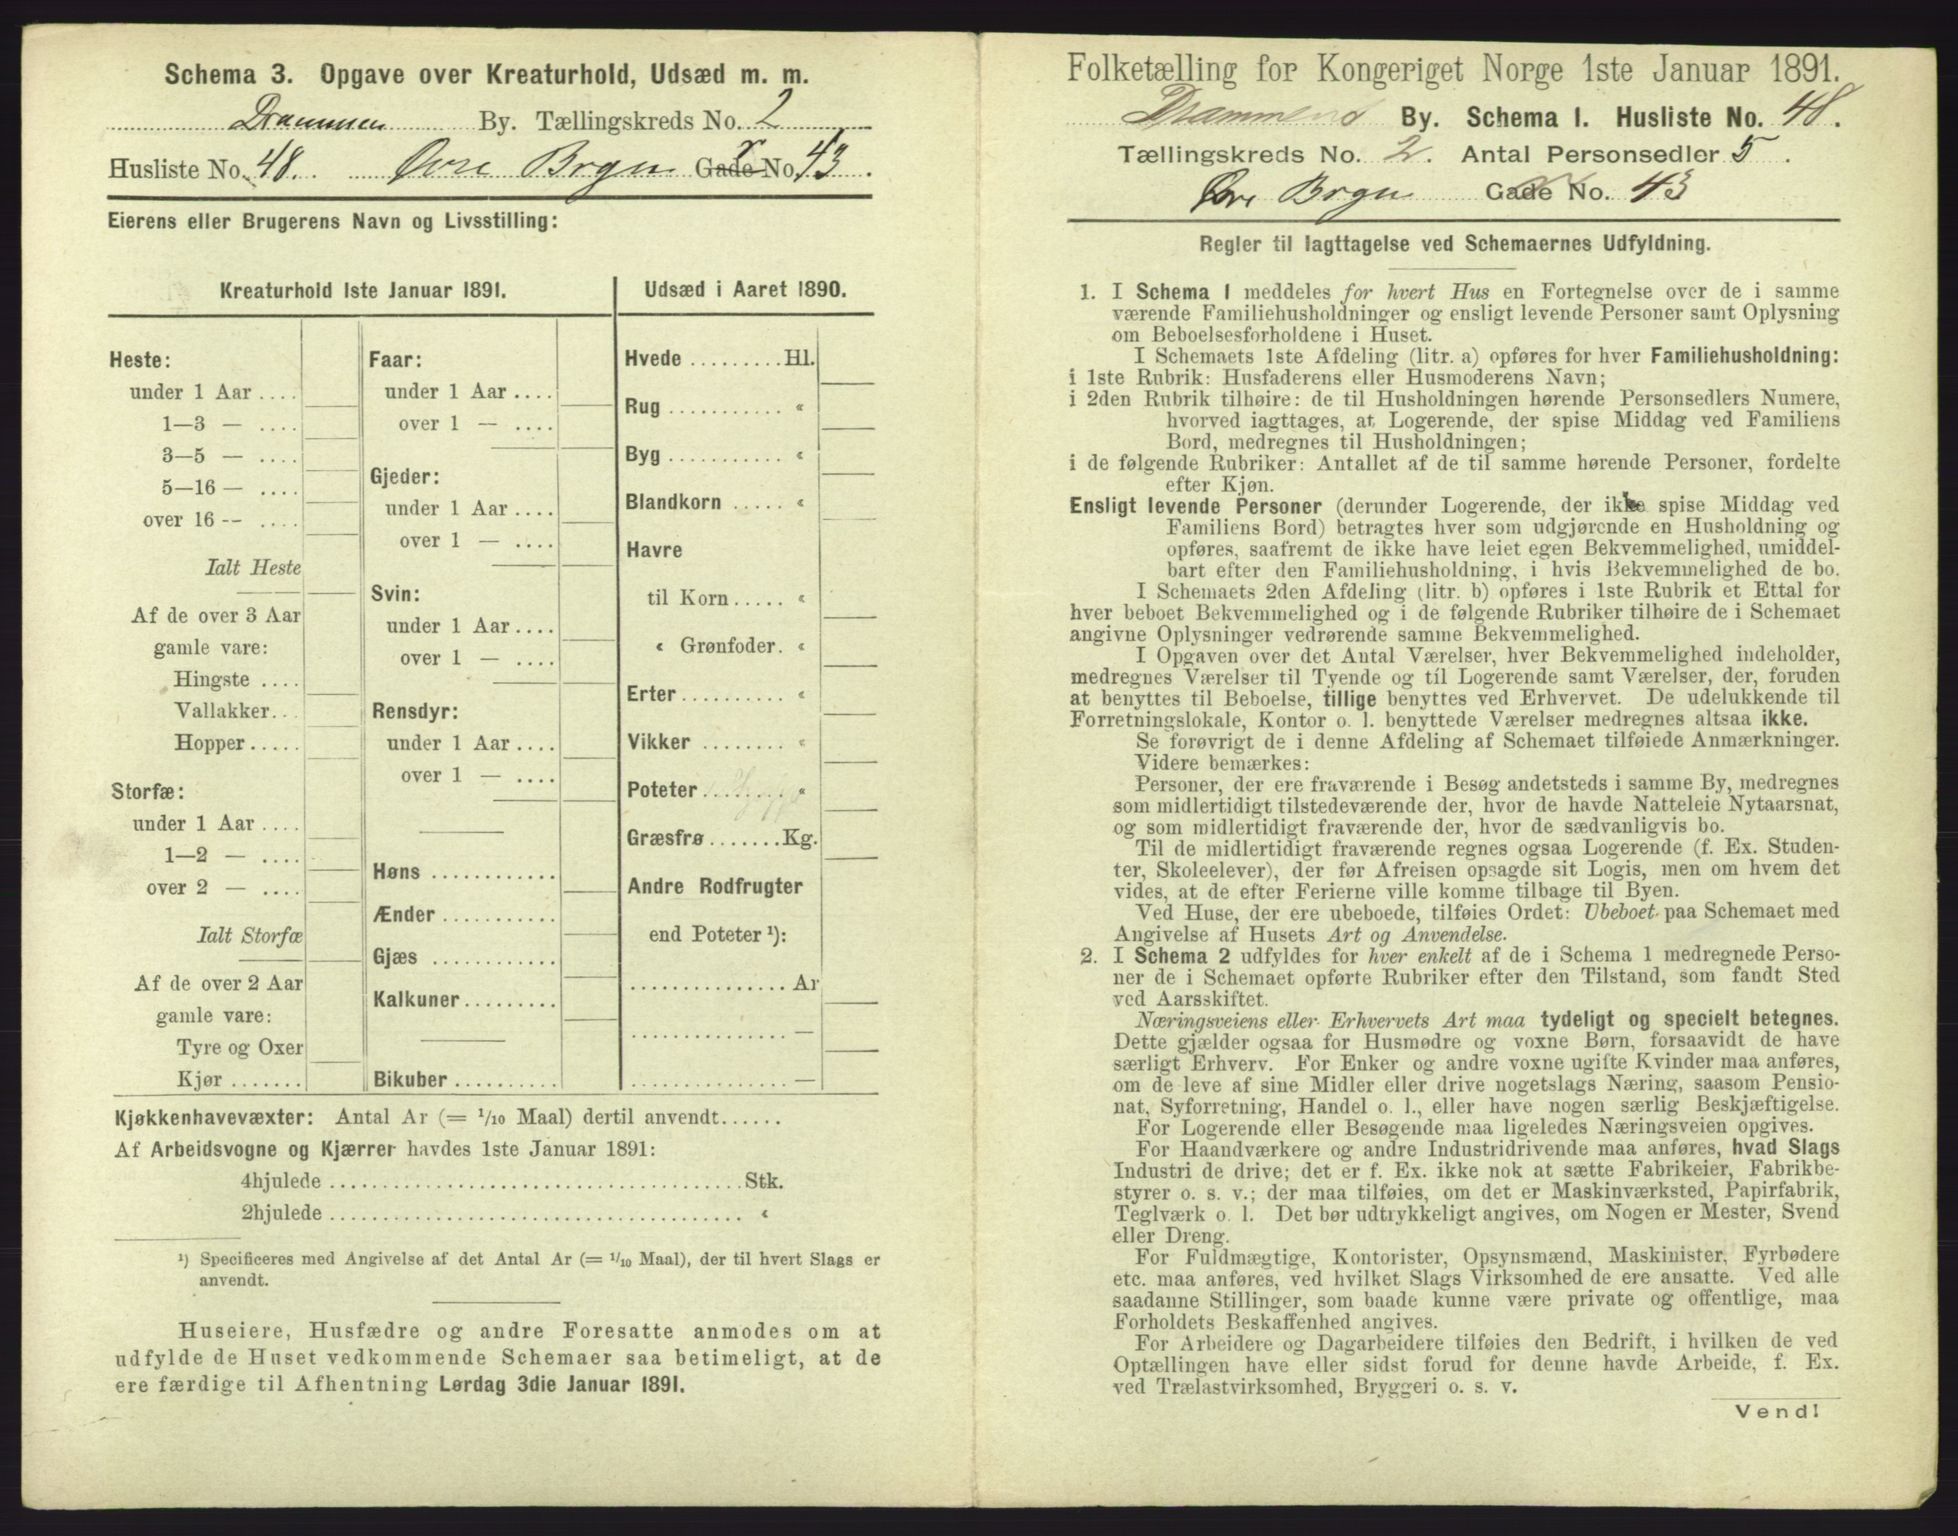 Schema 3. Opgave over Kreaturhold, Udsæd m. m.
Drammen By. Tællingskreds No. 2
Husliste No. 48. Øvre Brgn Gade No. 43.
Eierens eller Brugerens Navn og Livsstilling:
Kreaturhold 1ste Januar 1891.
Heste:
under 1 Aar ....
1—3 — ....
3—5 — ....
5—16 — ....
over 16 -- ....
Ialt Heste
Af de over 3 Aar
gamle vare:
Hingste ....
Vallakker...
Hopper.....
Storfæ:
under 1 Aar ....
1—2 — ....
over 2 — ....
Ialt Storfæ
Af de over 2 Aar
gamle vare:
Tyre og Oxer
Kjør .......
Faar:
under 1 Aar ....
over 1 — ....
Gjeder:
under 1 Aar ....
over 1 — ....
Svin:
under 1 Aar ....
over 1 — ....
Rensdyr:
under 1 Aar ....
over 1 — ....
Høns ............
Ænder ...........
Gjæs ............
Kalkuner.........
Bikuber ..........
Udsæd i Aaret 1890.
Hvede .........Hl.
Rug ........... «
Byg ........... «
Blandkorn ..... «
Havre
til Korn..... «
« Grønfoder. «
Erter ......... «
Vikker ........ «
Poteter ........ «
Græsfrø .......Kg.
Andre Rodfrugter
end Poteter ¹):
............... Ar
............... —
............... —
Kjøkkenhavevæxter: Antal Ar (= 1/10 Maal) dertil anvendt......
Af Arbeidsvogne og Kjærrer havdes 1ste Januar 1891:
4hjulede .....................................Stk.
2hjulede ..................................... «
¹) Specificeres med Angivelse af det Antal Ar (= 1/10 Maal), der til hvert Slags er
anvendt.
Huseiere, Husfædre og andre Foresatte anmodes om at
udfylde de Huset vedkommende Schemaer saa betimeligt, at de
ere færdige til Afhentning Lørdag 3die Januar 1891.
Folketælling for Kongeriget Norge 1ste Januar 1891.
Drammens By. Schema I. Husliste No. 48.
Tællingskreds No. 2. Antal Personsedler 5.
Øvre Brgn Gade No. 43
Regler til Iagttagelse ved Schemaernes Udfyldning.
1. I Schema 1 meddeles for hvert Hus en Fortegnelse over de i samme
værende Familiehusholdninger og ensligt levende Personer samt Oplysning
om Beboelsesforholdene i Huset.
I Schemaets 1ste Afdeling (litr. a) opføres for hver Familiehusholdning:
i 1ste Rubrik: Husfaderens eller Husmoderens Navn;
i 2den Rubrik tilhøire: de til Husholdningen hørende Personsedlers Numere,
hvorved iagttages, at Logerende, der spise Middag ved Familiens
Bord, medregnes til Husholdningen;
i de følgende Rubriker: Antallet af de til samme hørende Personer, fordelte
efter Kjøn.
Ensligt levende Personer (derunder Logerende, der ikke spise Middag ved
Familiens Bord) betragtes hver som udgjørende en Husholdning og
opføres, saafremt de ikke have leiet egen Bekvemmelighed, umiddel-
bart efter den Familiehusholdning, i hvis Bekvemmelighed de bo.
I Schemaets 2den Afdeling (litr. b) opføres i 1ste Rubrik et Ettal for
hver beboet Bekvemmelighed og i de følgende Rubriker tilhøire de i Schemaet
angivne Oplysninger vedrørende samme Bekvemmelighed.
I Opgaven over det Antal Værelser, hver Bekvemmelighed indeholder,
medregnes Værelser til Tyende og til Logerende samt Værelser, der, foruden
at benyttes til Beboelse, tillige benyttes ved Erhvervet. De udelukkende til
Forretningslokale, Kontor o. l. benyttede Værelser medregnes altsaa ikke.
Se forøvrigt de i denne Afdeling af Schemaet tilføiede Anmærkninger.
Videre bemærkes:
Personer, der ere fraværende i Besøg andetsteds i samme By, medregnes
som midlertidigt tilstedeværende der, hvor de havde Natteleie Nytaarsnat,
og som midlertidigt fraværende der, hvor de sædvanligvis bo.
Til de midlertidigt fraværende regnes ogsaa Logerende (f. Ex. Studen-
ter, Skoleelever), der før Afreisen opsagde sit Logis, men om hvem det
vides, at de efter Ferierne ville komme tilbage til Byen.
Ved Huse, der ere ubeboede, tilføies Ordet: Ubeboet paa Schemaet med
Angivelse af Husets Art og Anvendelse.
2. I Schema 2 udfyldes for hver enkelt af de i Schema 1 medregnede Perso-
ner de i Schemaet opførte Rubriker efter den Tilstand, som fandt Sted
ved Aarsskiftet.
Næringsveiens eller Erhvervets Art maa tydeligt og specielt betegnes.
Dette gjælder ogsaa for Husmødre og voxne Børn, forsaavidt de have
særligt Erhverv. For Enker og andre voxne ugifte Kvinder maa anføres,
om de leve af sine Midler eller drive nogetslags Næring, saasom Pensio-
nat, Syforretning, Handel o. l., eller have nogen særlig Beskjæftigelse.
For Logerende eller Besøgende maa ligeledes Næringsveien opgives.
For Haandværkere og andre Industridrivende maa anføres, hvad Slags
Industri de drive; det er f. Ex. ikke nok at sætte Fabrikeier, Fabrikbe-
styrer o. s. v.; der maa tilføies, om det er Maskinværksted, Papirfabrik,
Teglværk o. l. Det bør udtrykkeligt angives, om Nogen er Mester, Svend
eller Dreng.
For Fuldmægtige, Kontorister, Opsynsmænd, Maskinister, Fyrbødere
etc. maa anføres, ved hvilket Slags Virksomhed de ere ansatte. Ved alle
saadanne Stillinger, som baade kunne være private og offentlige, maa
Forholdets Beskaffenhed angives.
For Arbeidere og Dagarbeidere tilføies den Bedrift, i hvilken de ved
Optællingen have eller sidst forud for denne havde Arbeide, f. Ex.
ved Trælastvirksomhed, Bryggeri o. s. v.
Vend!